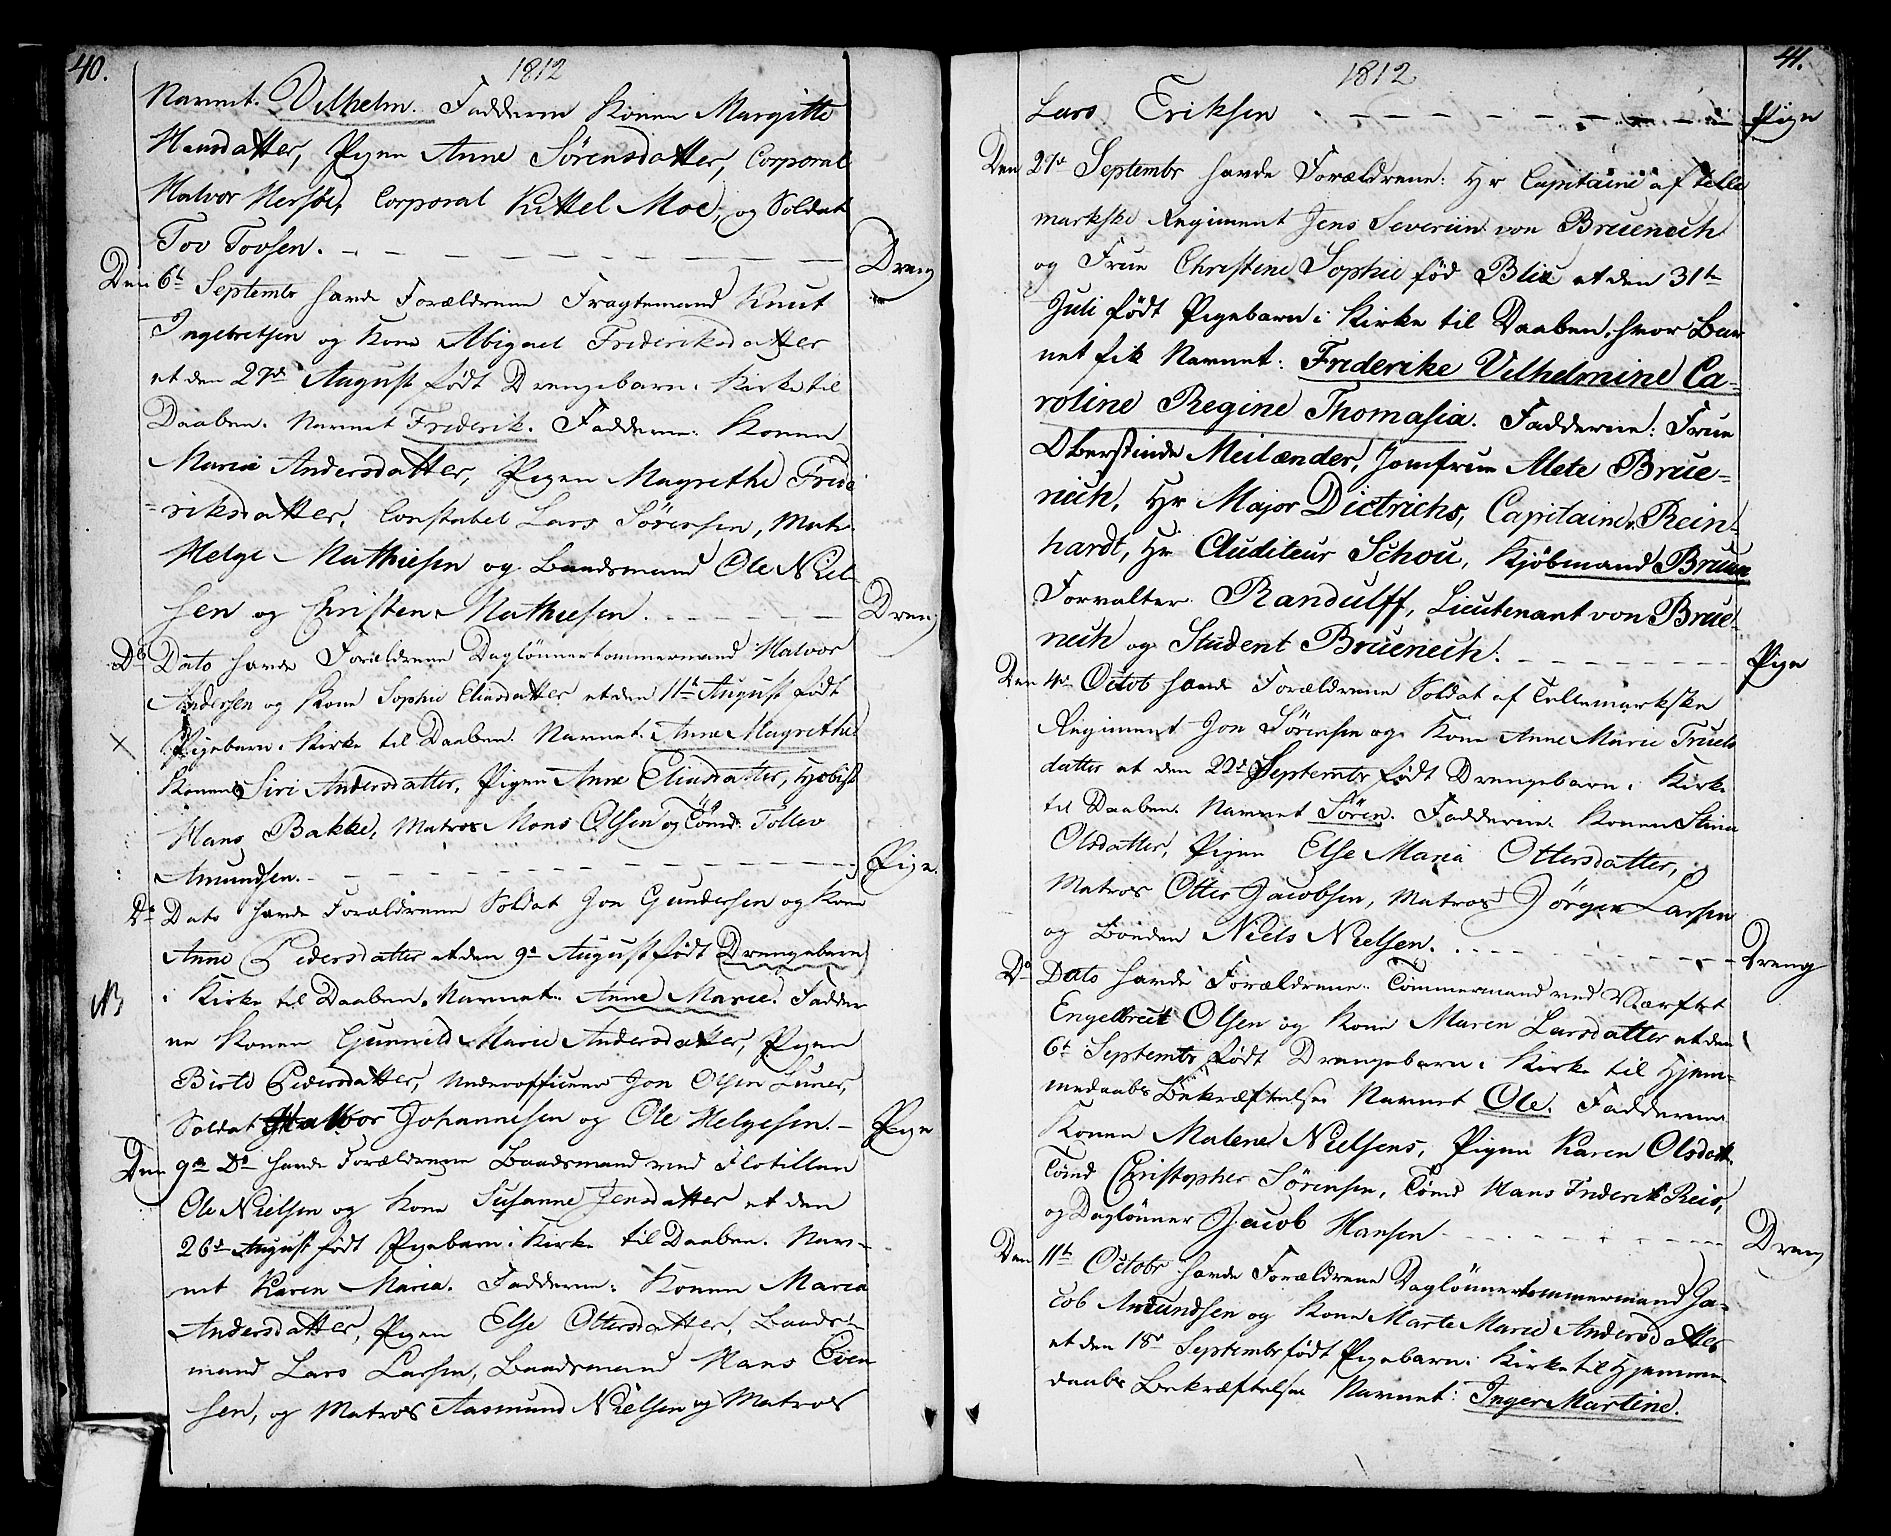 40.
1812
Navnet. Vilhelm. Faddere Konen Margitte
Hansdatter, Pigen Anne Sørensdatter, Corporal
Halvor Hersøe, Corporal Kittel Moe, og Soldat
Tov Tovsen. Dreng
Den 6t Septembr havde Forældrene Fragtemand Knut
Ingebretsen og Kone Abigael Frideriksdatter
et den 27de August født Drengebarn i Kirke til
Daaben. Navnet Friderik. Fadderne: Konen
Maria Andersdatter, Pigen Magrethe Fride
riksdatter, Constabel Lars Sørensen, Math
Helge Mathiesen og Baadsmand Ole Niel
sen og Christen Mathiesen. Dreng
Do Dato havde Forældrene Daglönnertömmermand Halvor
Andersen og Kone Sophie Eliasdatter et den 11te August født
× Pigebarn i Kirke til Daaben. Navnet: Anne Magrethe
Konen Siri Andersdatter, Pigen Anne Eliasdatter,
Hans Bakke, Matros Mons Olsen og Tömd. Tollev
Amundsen. Pige.
Do Dato havde Forældrene Soldat Jon Gundersen og Kone
Anne Pedersdatter et den 9de August født Drengebarn
NB i Kirke til Daaben. Navnet: Anne Marie. Fadder
ne Konen Gunneld Marie Andersdatter, Pigen
Birte Pedersdatter, Underofficeer Jon Olsen
Soldat Halvor Johannesen og Ole Helgesen. Pige
Den 9de Do havde Forældrene Baadsmand ved Flotillen
Ole Nielsen og Kone Susanne Jensdatter et den
26de August født Pigebarn i Kirke til Daaben. Nav-
net Karen Maria. Fadderne: Konen Maria
Andersdatter, Pigen Else Ottersdatter, Baads-
mand Lars Larsen, Baadsmand Hans Even
sen, og Matros Aasmund Nielsen og Matros
41.
1812
Lars Eriksen Pige
Den 27de Septembr havde Forældrene: Hr Capitaine af Telle
markske Regiment Jens Severiin von Bruenech
og Frue Christene Sophie fød Blix et den 31te
Juli født Pigebarn i Kirke til Daaben, hvor Bar
net fik Navnet: Friderike Vilhelmine Ca-
roline Regine Thomasia. Fadderne: Frue
Oberstinde Meilænder, Jomfrue Mete Brue-
nech, Hr Major Dietrichs, Capitaine Rein-
hardt, Hr Auditeur Schou, Kjøbmand Bruun
Forvalter Randulff, Lieutenant von Brue-
nech og Student Bruenech. Pige
Den 4de Octob havde Forældrene Soldat af Tellemarkske
Regiment Jon Sörensen og Kone Anne Marie Truels
datter et den 22de Septembr født Drengebarn i Kirke
til Daaben. Navnet Sören. Fadderne. Konen Stine
Olsdatter, Pigen Else Maria Ottersdatter,
Matros Otter Jacobsen, Matros Jörgen Larsen
og Bonden Niels Nielsen. Dreng
Do Dato havde Forældrene: Tömmermand ved Værftet
Engelbret Olsen og Kone Maren Larsdatter et den
6t Septembr født Drengebarn i Kirke til Hjem-
medaabs Bekræftelse Navnet Ole. Fadderne
Konen Malene Nielsens, Pigen Karen Olsdatt
Tömd Christopher Sörensen, Tömd Hans Friderik Reis,
og Daglönner Jacob Hansen Dreng
Den 11te Octobr havde Forældrene Daglönnertömmermand Ja-
cob Amundsen og Kone Marte Marie Andersdatter
et den 18de Septembr født Pigebarn i Kirke til Hjemme-
daabs Bekræftelse Navnet: Inger Martine.